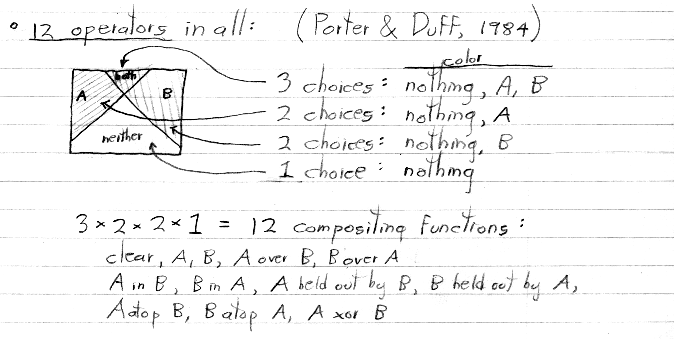 ° 12 operators in all: (Porter & Duff, 1984)
color
both
A
B
neither
3 choices: nothing, A, B
2 choices: nothing, A
2 choices: nothing, B
1 choice: nothing
3 × 2 × 2 × 1 = 12 compositing functions:
clear, A, B, A over B, B over A
A in B, B in A, A held out by B, B held out by A,
A atop B, B atop A, A xor B